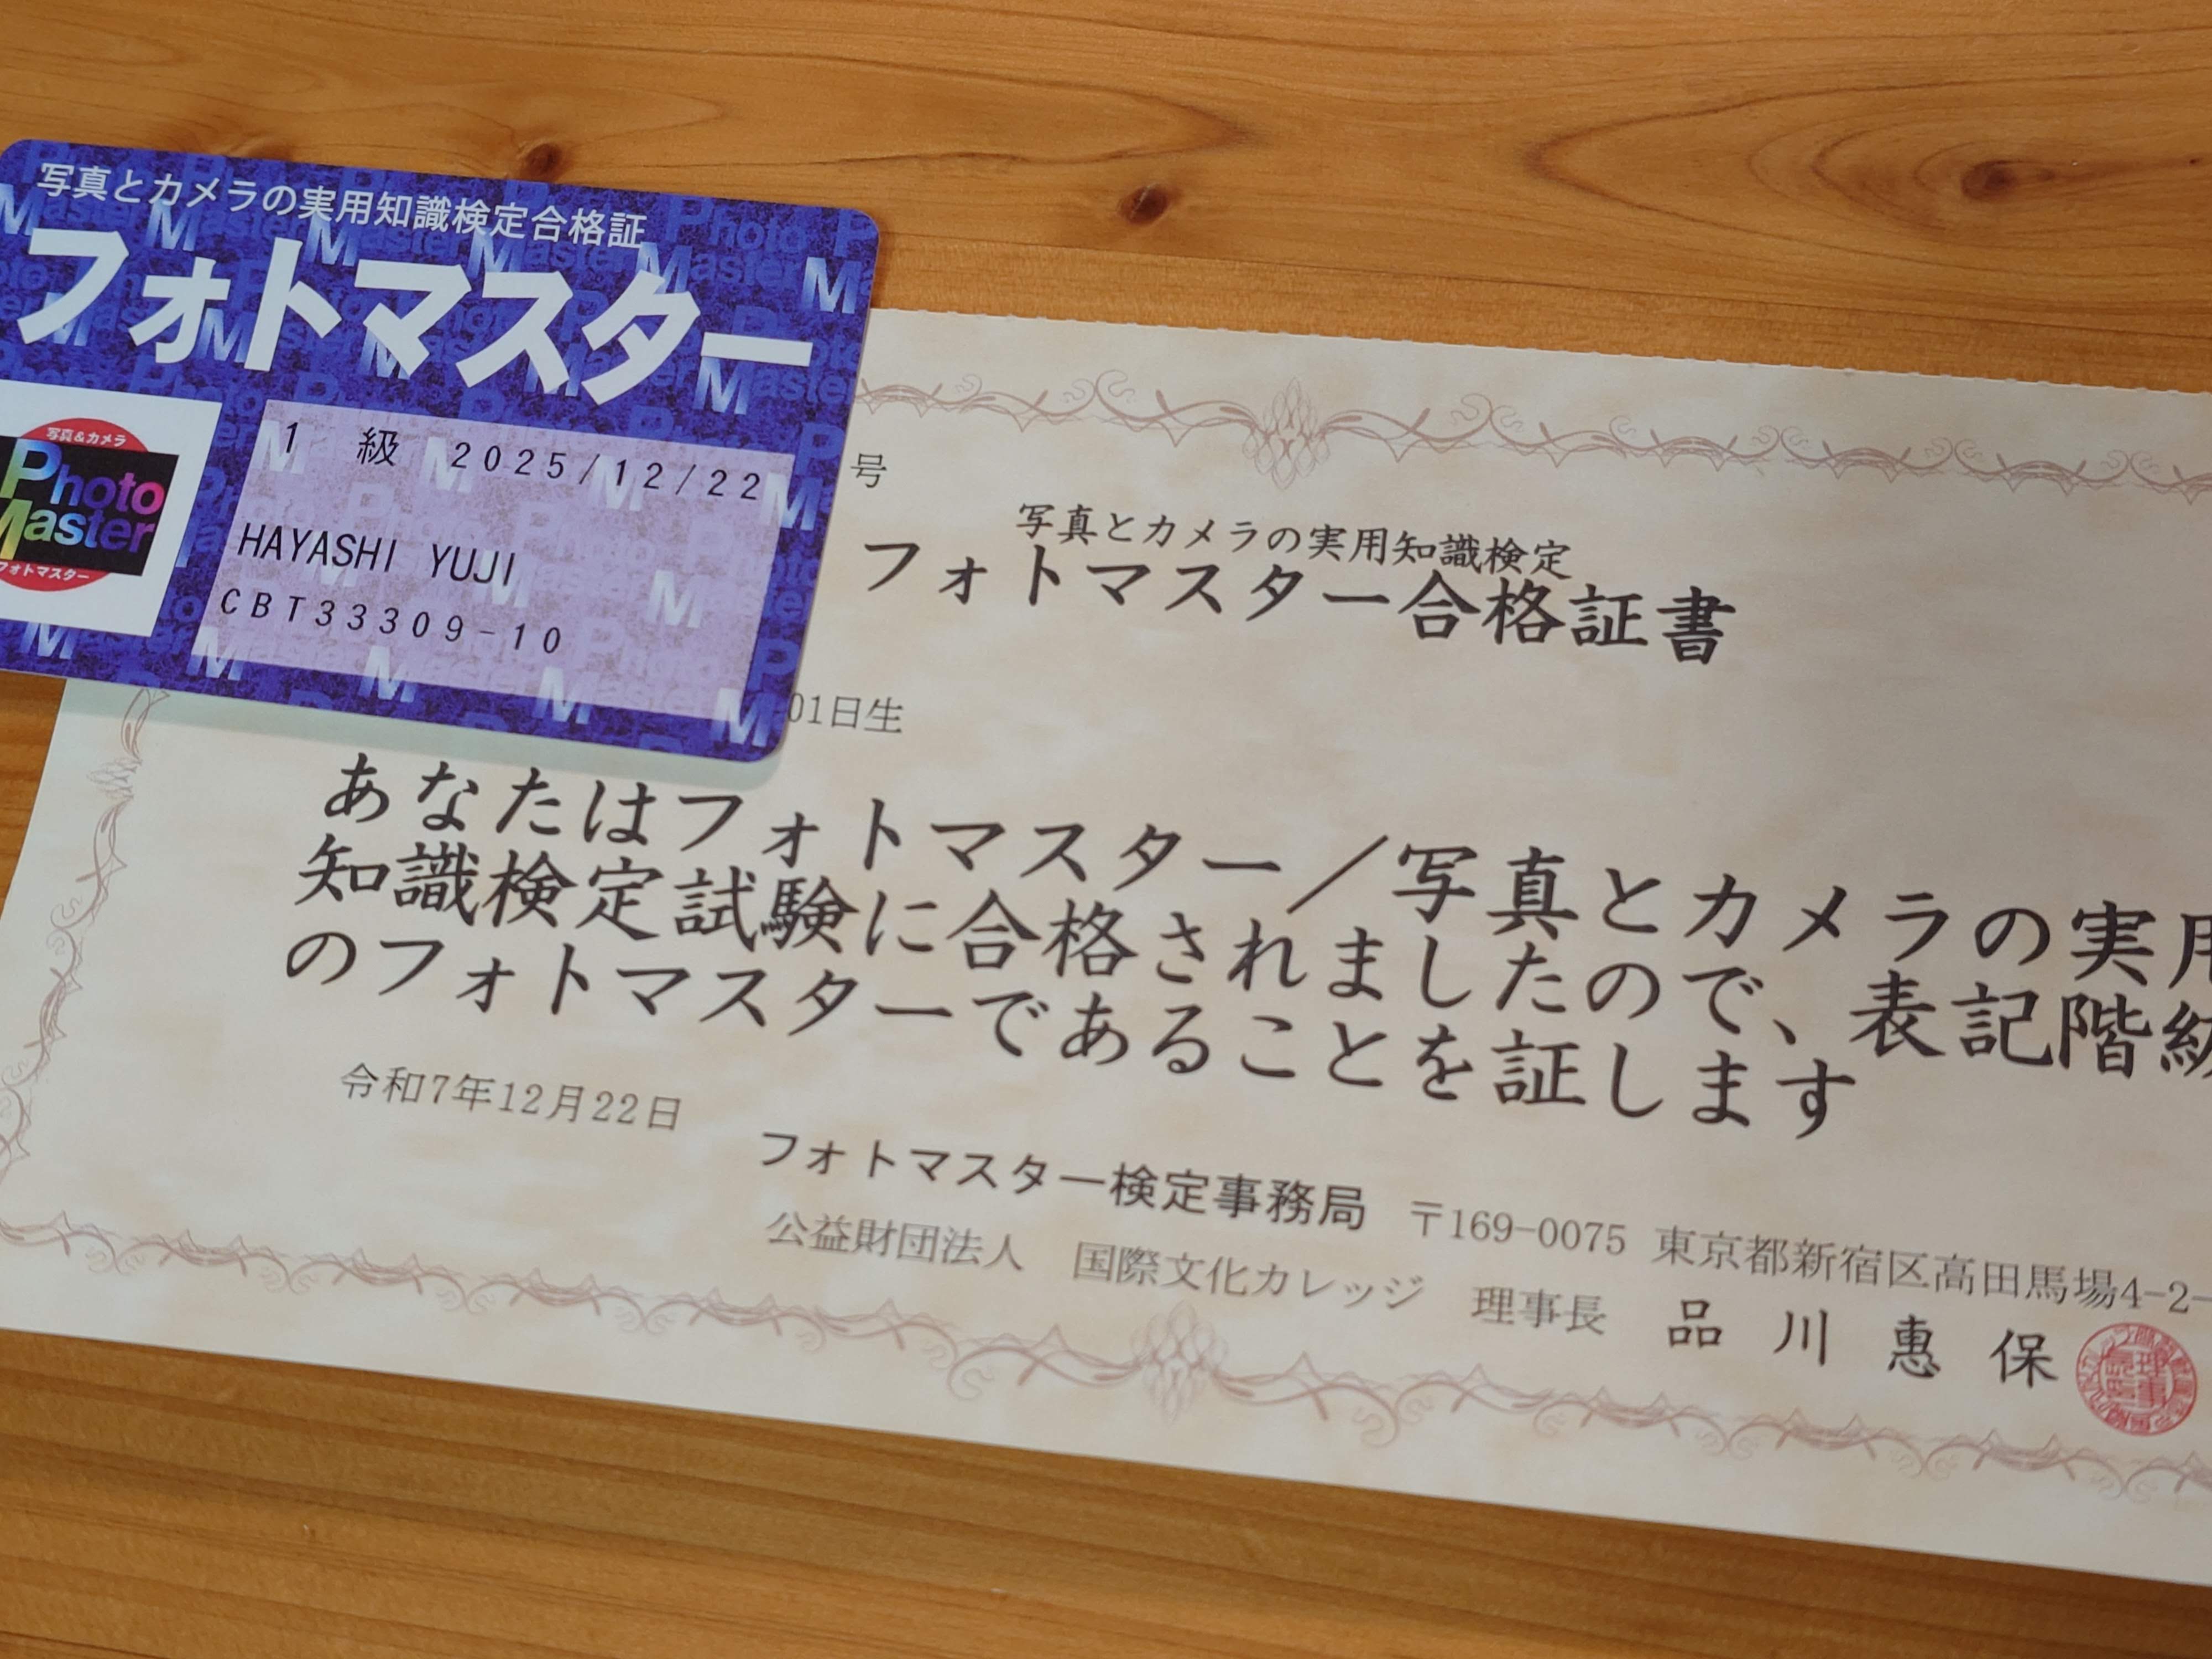 写真とカメラの実用知識検定合格証
フォトマスター
写真&カメラ
Photo
Master
フォトマスター
1 級 2025/12/22
HAYASHI YUJI
CBT33309-10
号
写真とカメラの実用知識検定
フォトマスター合格証書
01日生
あなたはフォトマスター/写真とカメラの実用
知識検定試験に合格されましたので、表記階級
のフォトマスターであることを証します
令和7年12月22日
フォトマスター検定事務局 〒169-0075 東京都新宿区高田馬場4-2-
公益財団法人 国際文化カレッジ 理事長 品川惠保